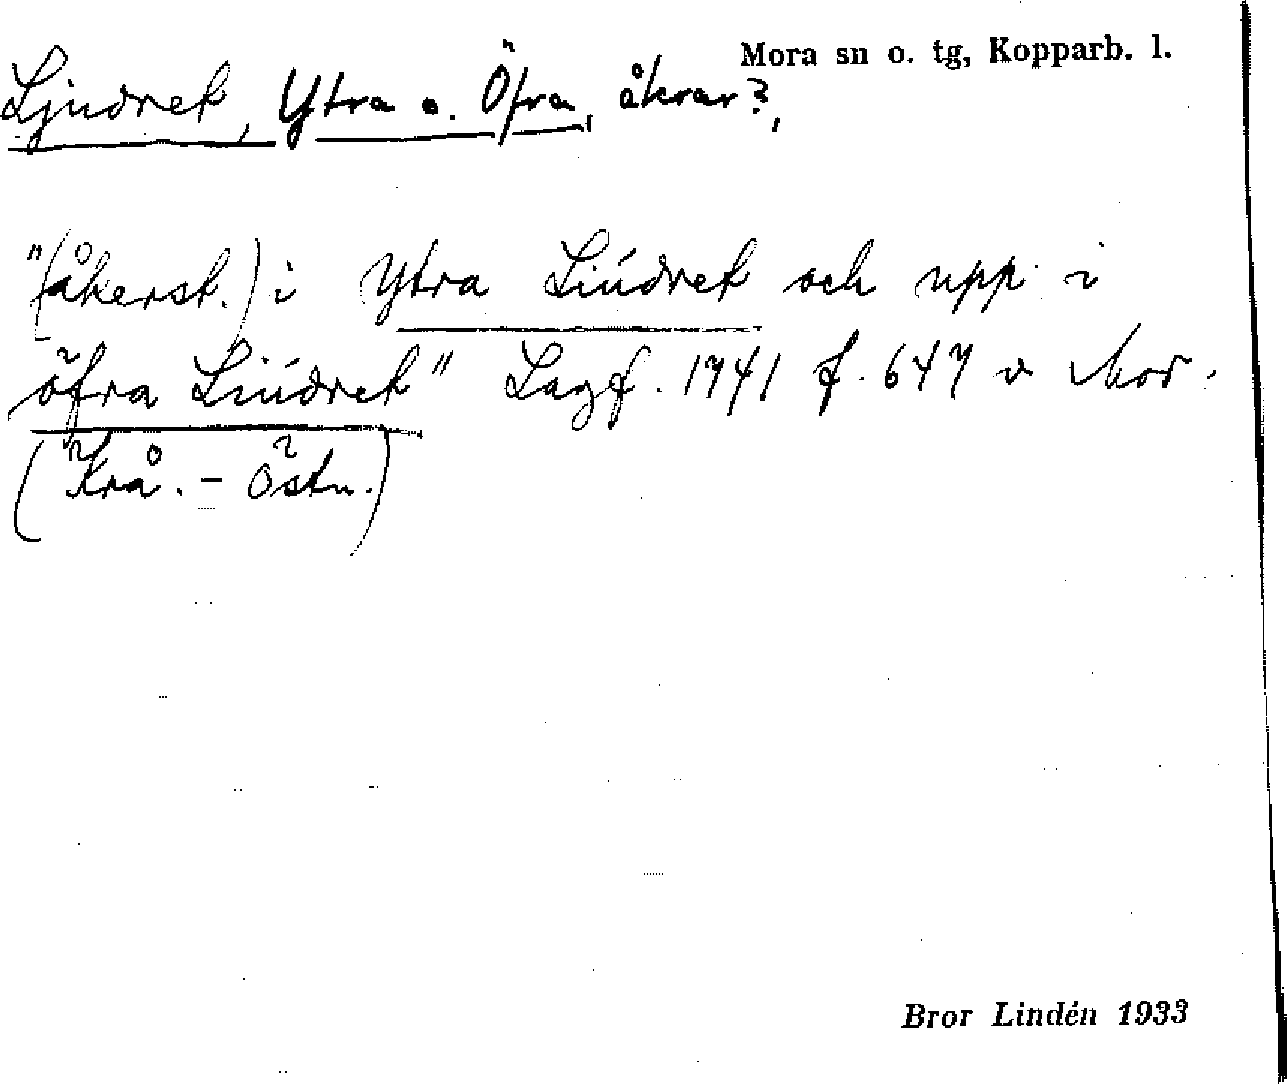 Mora sn o. tg, Kopparb. l.
Ljudret, Ytra o. Öfra, åkrar?,
"(åkerst.) i Ytra Liúdret och upp i
öfra Liúdret" Lagf. 1741 f. 647 v Mor.
(Krå. - Östn.)
Bror Lindén 1933